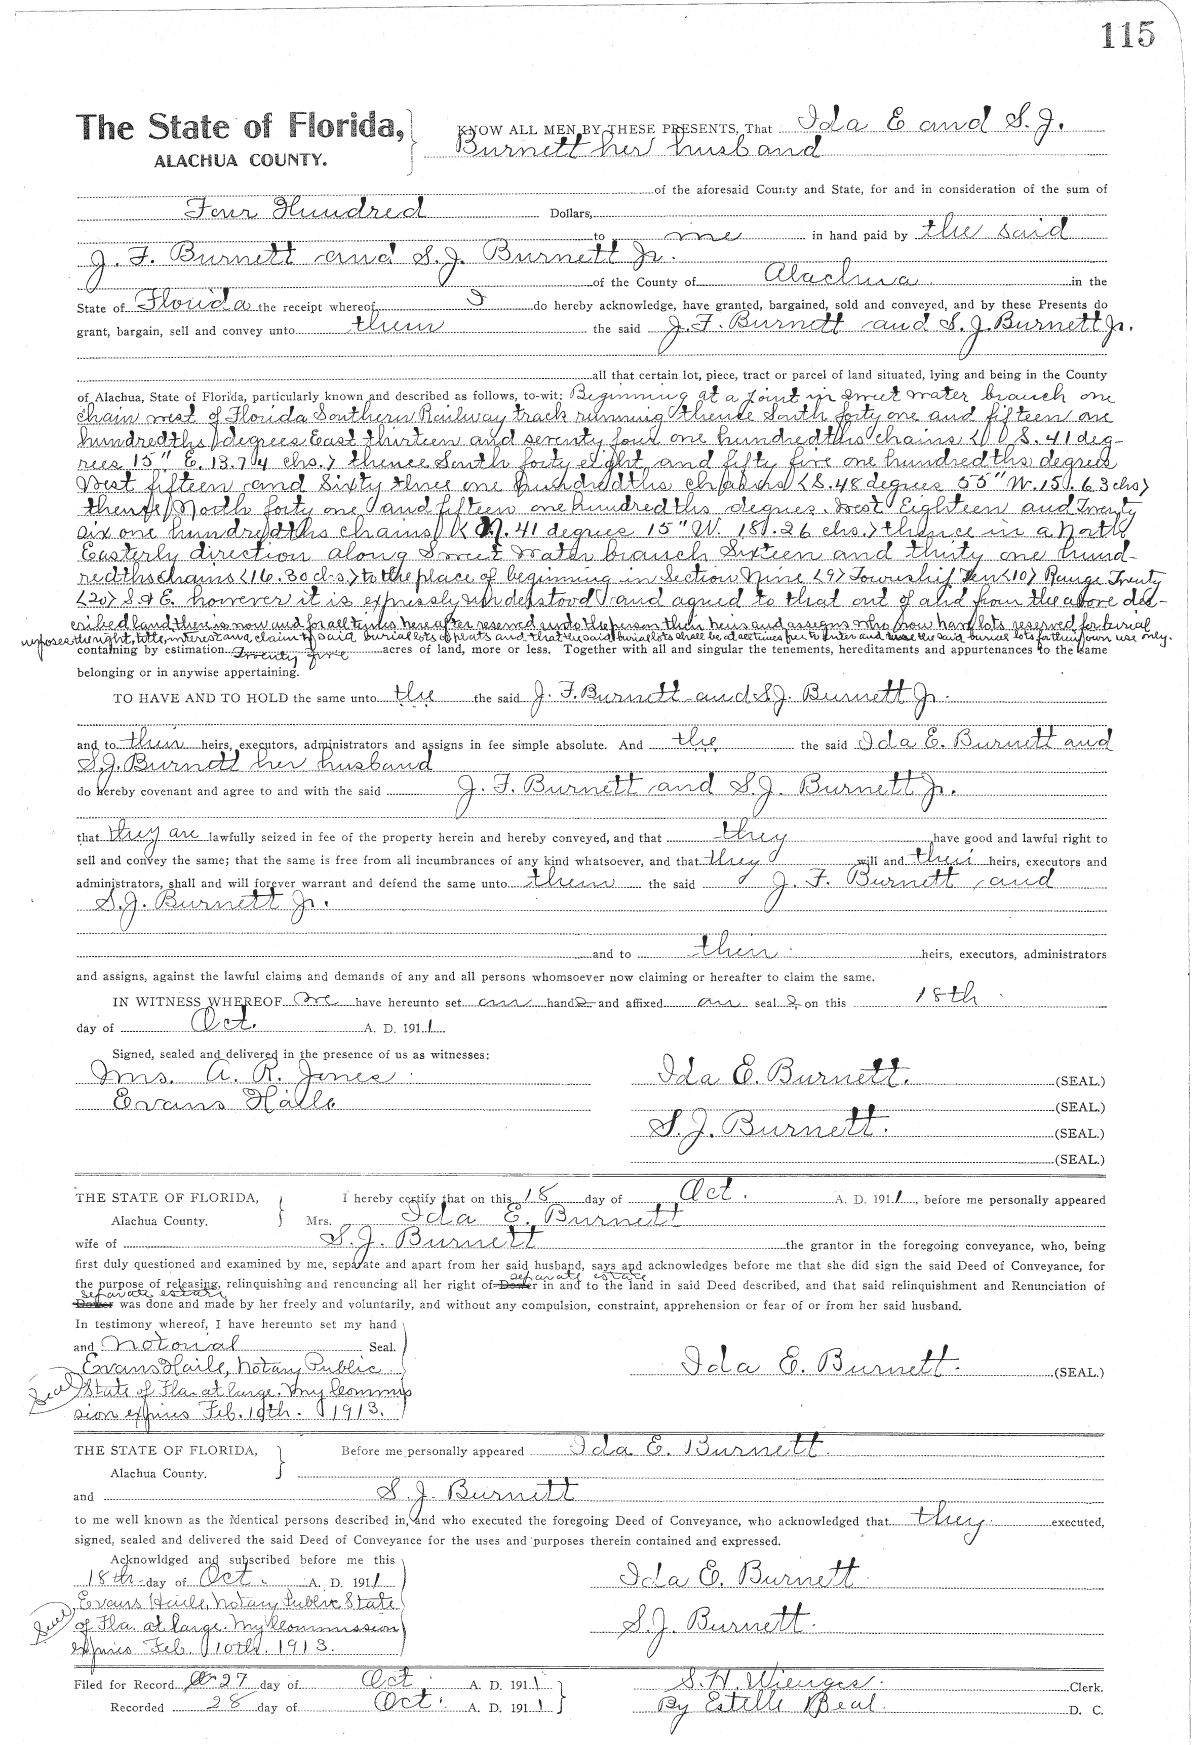 115
The State of Florida, KNOW ALL MEN BY THESE PRESENTS, That Ida E and S. J.
ALACHUA COUNTY. Burnett her husband
of the aforesaid County and State, for and in consideration of the sum of
Four Hundred Dollars,
to me in hand paid by the said
J. F. Burnett and S. J. Burnett Jr.
of the County of Alachua in the
State of Florida the receipt whereof I do hereby acknowledge, have granted, bargained, sold and conveyed, and by these Presents do
grant, bargain, sell and convey unto them the said J. F. Burnett and S. J. Burnett Jr.
all that certain lot, piece, tract or parcel of land situated, lying and being in the County
of Alachua, State of Florida, particularly known and described as follows, to-wit: Beginning at a point in Sweet water branch one
chain west of Florida Southern Railway track running thence South forty one and fifteen one
hundredths degrees East thirteen and seventy four one hundredths chains (S. 41 deg-
rees 15" E. 13.74 chs.) thence South forty eight and fifty five one hundredths degrees
West fifteen and Sixty three one hundredths chains (S. 48 degrees 55" W. 15.63 chs)
thence North forty one and fifteen one hundredths degrees West Eighteen and Twenty
six one hundredths chains (N. 41 degrees 15" W. 18.26 chs.) thence in a North
Easterly direction along Sweet Water branch Sixteen and thirty one hund-
redths chains (16.30 chs.) to the place of beginning in Section Nine (9) Township Ten (10) Range Twenty
(20) S. & E. however it is expressly understood and agreed to that out of and from the above des-
cribed land there is now and for all times here after reserved unto the person their heirs and assigns who now have lots reserved for burial
the right, title, interest and claim to said burial lots and that the said burial lots shall be at all times free to enter and use the said burial lots for their own use only.
containing by estimation Twenty five acres of land, more or less. Together with all and singular the tenements, hereditaments and appurtenances to the same
belonging or in anywise appertaining.
TO HAVE AND TO HOLD the same unto the the said J. F. Burnett and S. J. Burnett Jr.
and to their heirs, executors, administrators and assigns in fee simple absolute. And the the said Ida E. Burnett and
S. J. Burnett her husband
do hereby covenant and agree to and with the said J. F. Burnett and S. J. Burnett Jr.
that they are lawfully seized in fee of the property herein and hereby conveyed, and that they have good and lawful right to
sell and convey the same; that the same is free from all incumbrances of any kind whatsoever, and that they will and their heirs, executors and
administrators, shall and will forever warrant and defend the same unto them the said J. F. Burnett and
S. J. Burnett Jr.
and to their heirs, executors, administrators
and assigns, against the lawful claims and demands of any and all persons whomsoever now claiming or hereafter to claim the same.
IN WITNESS WHEREOF we have hereunto set our hands and affixed our seals on this 18th
day of Oct. A. D. 1911.
Signed, sealed and delivered in the presence of us as witnesses:
Mrs. A. R. Jones Ida E. Burnett. (SEAL.)
Evans Haile (SEAL.)
S. J. Burnett. (SEAL.)
(SEAL.)
THE STATE OF FLORIDA, I hereby certify that on this 18 day of Oct. A. D. 1911, before me personally appeared
Alachua County. Mrs. Ida E. Burnett
wife of S. J. Burnett the grantor in the foregoing conveyance, who, being
first duly questioned and examined by me, separate and apart from her said husband, says and acknowledges before me that she did sign the said Deed of Conveyance, for
the purpose of releasing, relinquishing and renouncing all her right of Dower separate estate in and to the land in said Deed described, and that said relinquishment and Renunciation of
Dower separate estate was done and made by her freely and voluntarily, and without any compulsion, constraint, apprehension or fear of or from her said husband.
In testimony whereof, I have hereunto set my hand
and Notorial Seal.
Evans Haile, Notary Public Ida E. Burnett. (SEAL)
Seal State of Fla. at large. My Commis
sion expires Feb. 10th. 1913.
THE STATE OF FLORIDA, Before me personally appeared Ida E. Burnett.
Alachua County.
and S. J. Burnett
to me well known as the identical persons described in, and who executed the foregoing Deed of Conveyance, who acknowledged that they executed,
signed, sealed and delivered the said Deed of Conveyance for the uses and purposes therein contained and expressed.
Acknowldged and subscribed before me this
18th day of Oct. A. D. 1911 Ida E. Burnett
Evans Haile, Notary Public State
Seal of Fla. at large. My Commission S. J. Burnett.
expires Feb. 10th. 1913.
Filed for Record 27 day of Oct. A. D. 1911 S. H. Wienges. Clerk.
Recorded 28 day of Oct. A. D. 1911 By Estelle Beal. D. C.